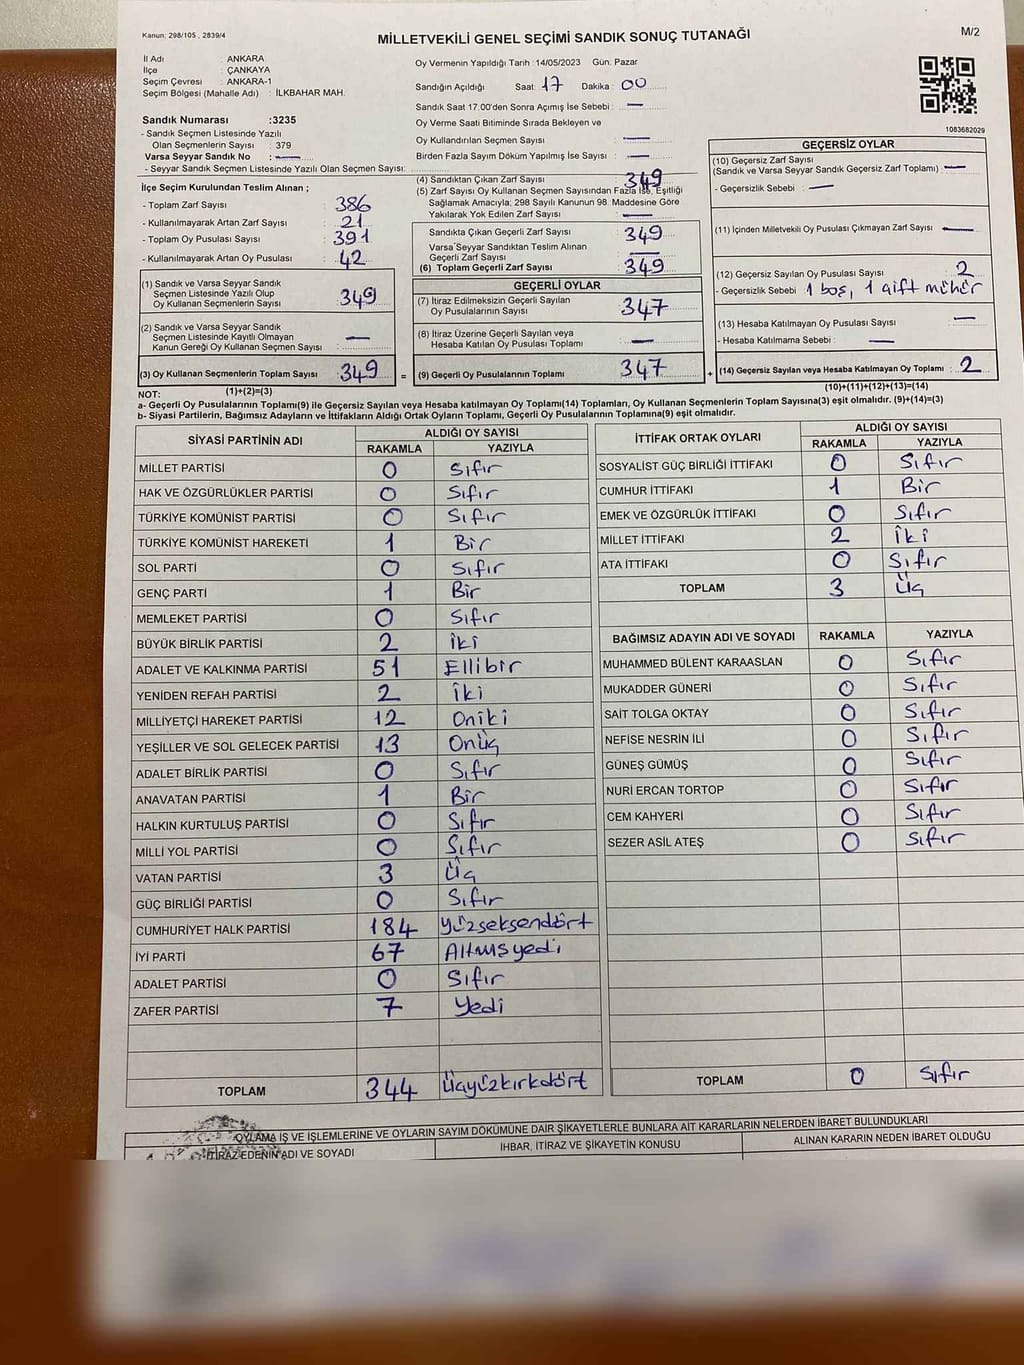 Kanun: 298/105 , 2839/4
MİLLETVEKİLİ GENEL SEÇİMİ SANDIK SONUÇ TUTANAĞI
M/2
İl Adı : ANKARA
İlçe : ÇANKAYA
Seçim Çevresi : ANKARA-1
Seçim Bölgesi (Mahalle Adı) : İLKBAHAR MAH.
Sandık Numarası :3235
- Sandık Seçmen Listesinde Yazılı
Olan Seçmenlerin Sayısı : 379
Varsa Seyyar Sandık No : —
- Seyyar Sandık Seçmen Listesinde Yazılı Olan Seçmen Sayısı:
Oy Vermenin Yapıldığı Tarih :14/05/2023 Gün: Pazar
Sandığın Açıldığı Saat: 17 Dakika : 00
Sandık Saat 17.00'den Sonra Açımış İse Sebebi : —
Oy Verme Saati Bitiminde Sırada Bekleyen ve
Oy Kullandırılan Seçmen Sayısı : —
Birden Fazla Sayım Döküm Yapılmış İse Sayısı : —
1083682029
İlçe Seçim Kurulundan Teslim Alınan ;
- Toplam Zarf Sayısı : 386
- Kullanılmayarak Artan Zarf Sayısı : 21
- Toplam Oy Pusulası Sayısı : 391
- Kullanılmayarak Artan Oy Pusulası : 42
(1) Sandık ve Varsa Seyyar Sandık
Seçmen Listesinde Yazılı Olup
Oy Kullanan Seçmenlerin Sayısı : 349
(2) Sandık ve Varsa Seyyar Sandık
Seçmen Listesinde Kayıtlı Olmayan
Kanun Gereği Oy Kullanan Seçmen Sayısı : —
(3) Oy Kullanan Seçmenlerin Toplam Sayısı : 349
(1)+(2)=(3)
(4) Sandıktan Çıkan Zarf Sayısı : 349
(5) Zarf Sayısı Oy Kullanan Seçmen Sayısından Fazla İse, Eşitliği
Sağlamak Amacıyla, 298 Sayılı Kanunun 98. Maddesine Göre
Yakılarak Yok Edilen Zarf Sayısı : —
Sandıkta Çıkan Geçerli Zarf Sayısı : 349
Varsa Seyyar Sandıktan Teslim Alınan
Geçerli Zarf Sayısı : —
(6) Toplam Geçerli Zarf Sayısı : 349
GEÇERLİ OYLAR
(7) İtiraz Edilmeksizin Geçerli Sayılan
Oy Pusulalarının Sayısı : 347
(8) İtiraz Üzerine Geçerli Sayılan veya
Hesaba Katılan Oy Pusulası Toplamı : —
= (9) Geçerli Oy Pusulalarının Toplamı : 347
GEÇERSİZ OYLAR
(10) Geçersiz Zarf Sayısı
(Sandık ve Varsa Seyyar Sandık Geçersiz Zarf Toplamı) : —
- Geçersizlik Sebebi : —
(11) İçinden Milletvekili Oy Pusulası Çıkmayan Zarf Sayısı : —
(12) Geçersiz Sayılan Oy Pusulası Sayısı : 2
- Geçersizlik Sebebi : 1 boş, 1 çift mühür
(13) Hesaba Katılmayan Oy Pusulası Sayısı : —
- Hesaba Katılmama Sebebi : —
+ (14) Geçersiz Sayılan veya Hesaba Katılmayan Oy Toplamı : 2
(10)+(11)+(12)+(13)=(14)
NOT:
a- Geçerli Oy Pusulalarının Toplamı(9) ile Geçersiz Sayılan veya Hesaba katılmayan Oy Toplamı(14) Toplamları, Oy Kullanan Seçmenlerin Toplam Sayısına(3) eşit olmalıdır. (9)+(14)=(3)
b- Siyasi Partilerin, Bağımsız Adayların ve İttifakların Aldığı Ortak Oyların Toplamı, Geçerli Oy Pusulalarının Toplamına(9) eşit olmalıdır.
SİYASİ PARTİNİN ADI ALDIĞI OY SAYISI
RAKAMLA YAZIYLA
MİLLET PARTİSİ 0 Sıfır
HAK VE ÖZGÜRLÜKLER PARTİSİ 0 Sıfır
TÜRKİYE KOMÜNİST PARTİSİ 0 Sıfır
TÜRKİYE KOMÜNİST HAREKETİ 1 Bir
SOL PARTİ 0 Sıfır
GENÇ PARTİ 1 Bir
MEMLEKET PARTİSİ 0 Sıfır
BÜYÜK BİRLİK PARTİSİ 2 İki
ADALET VE KALKINMA PARTİSİ 51 Ellibir
YENİDEN REFAH PARTİSİ 2 İki
MİLLİYETÇİ HAREKET PARTİSİ 12 Oniki
YEŞİLLER VE SOL GELECEK PARTİSİ 13 Onüç
ADALET BİRLİK PARTİSİ 0 Sıfır
ANAVATAN PARTİSİ 1 Bir
HALKIN KURTULUŞ PARTİSİ 0 Sıfır
MİLLİ YOL PARTİSİ 0 Sıfır
VATAN PARTİSİ 3 Üç
GÜÇ BİRLİĞİ PARTİSİ 0 Sıfır
CUMHURİYET HALK PARTİSİ 184 Yüzseksendört
İYİ PARTİ 67 Altmışyedi
ADALET PARTİSİ 0 Sıfır
ZAFER PARTİSİ 7 Yedi
TOPLAM 344 Üçyüzkırkdört
İTTİFAK ORTAK OYLARI ALDIĞI OY SAYISI
RAKAMLA YAZIYLA
SOSYALİST GÜÇ BİRLİĞİ İTTİFAKI 0 Sıfır
CUMHUR İTTİFAKI 1 Bir
EMEK VE ÖZGÜRLÜK İTTİFAKI 0 Sıfır
MİLLET İTTİFAKI 2 İki
ATA İTTİFAKI 0 Sıfır
TOPLAM 3 Üç
BAĞIMSIZ ADAYIN ADI VE SOYADI RAKAMLA YAZIYLA
MUHAMMED BÜLENT KARAASLAN 0 Sıfır
MUKADDER GÜNERİ 0 Sıfır
SAİT TOLGA OKTAY 0 Sıfır
NEFİSE NESRİN İLİ 0 Sıfır
GÜNEŞ GÜMÜŞ 0 Sıfır
NURİ ERCAN TORTOP 0 Sıfır
CEM KAHYERİ 0 Sıfır
SEZER ASİL ATEŞ 0 Sıfır
TOPLAM 0 Sıfır
OYLAMA İŞ VE İŞLEMLERİNE VE OYLARIN SAYIM DÖKÜMÜNE DAİR ŞİKAYETLERLE BUNLARA AİT KARARLARIN NELERDEN İBARET BULUNDUKLARI
İTİRAZ EDENİN ADI VE SOYADI İHBAR, İTİRAZ VE ŞİKAYETİN KONUSU ALINAN KARARIN NEDEN İBARET OLDUĞU